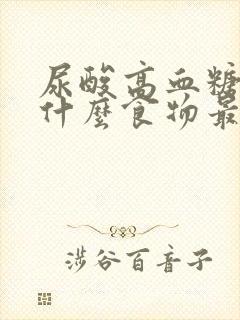 尿酸高血糖
什麼食物最
涉谷百音子